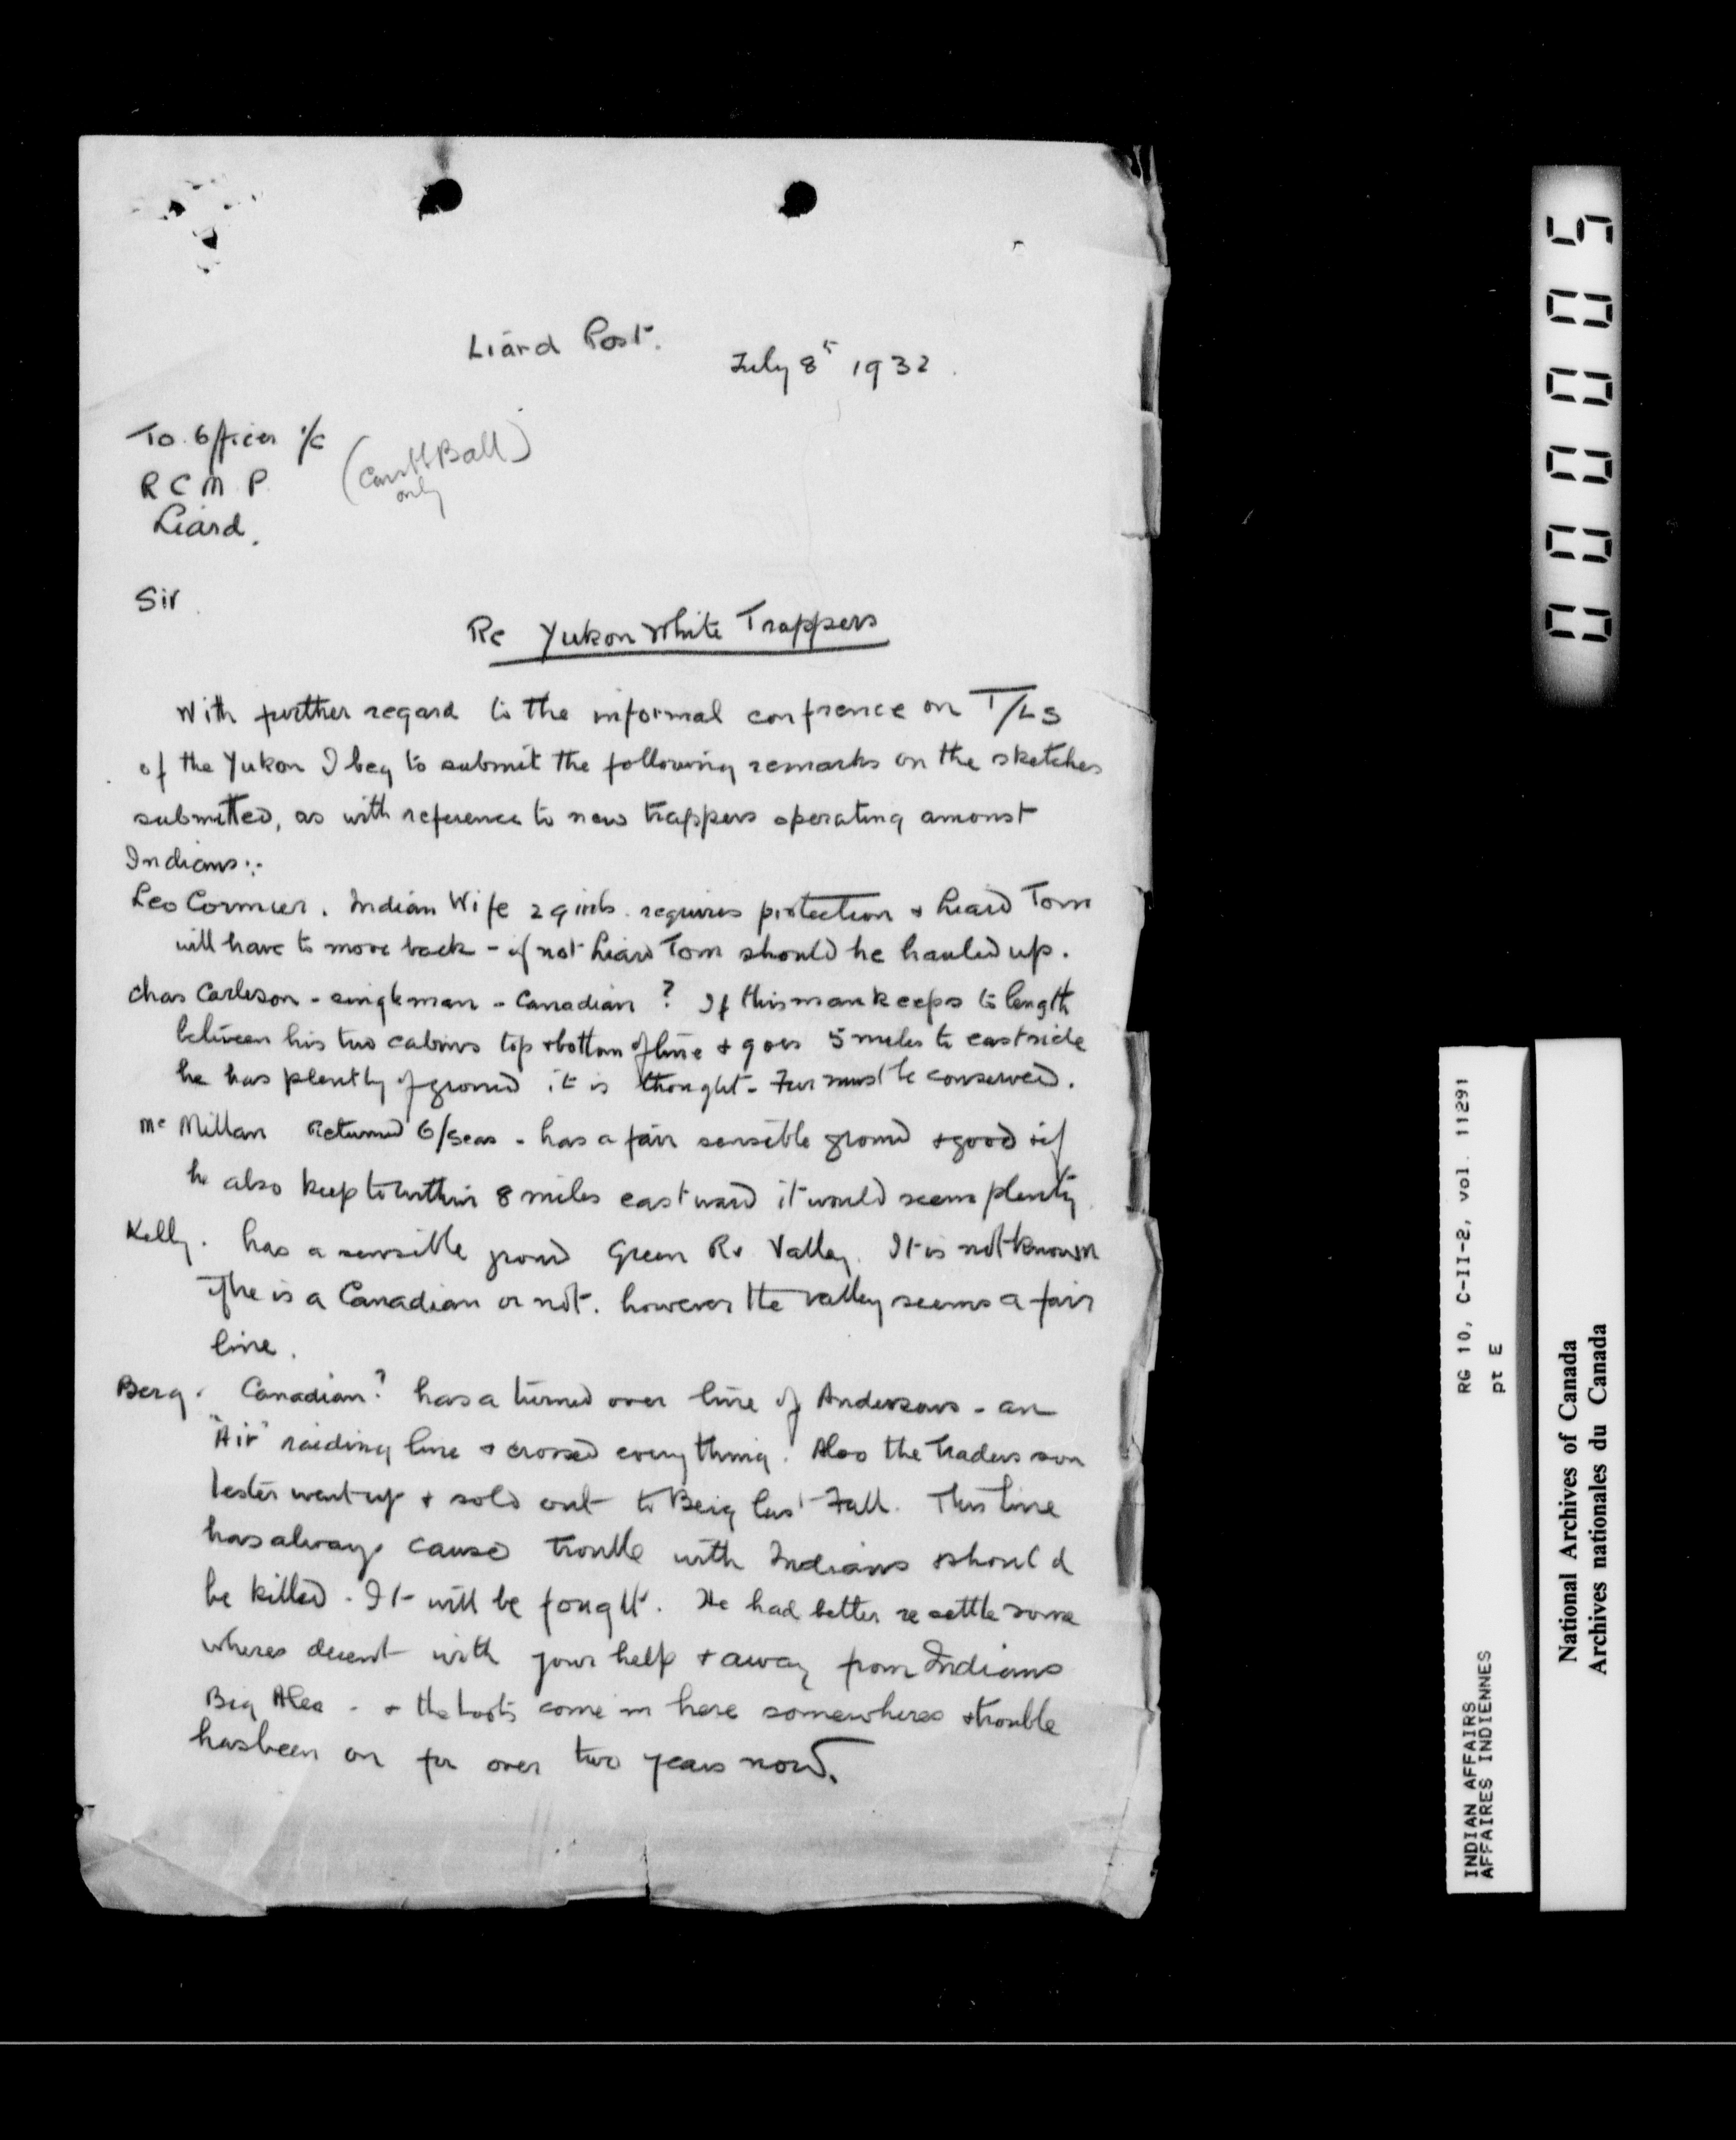 Liard Post.
July 8th 1932.
To Officer i/c
R C M P.
Liard.
(Const Ball)
only
Sir
Re Yukon White Trappers
With further regard to the informal confrence on T/Ls
of the Yukon I beg to submit the following remarks on the sketches
submitted, as with reference to new trappers operating amonst
Indians:-
Leo Cormier. Indian Wife 2 girls. requires protection & Liard Tom
will have to move back - if not Liard Tom should be hauled up.
Chas Carlson - single man - Canadian? If this man keeps to length
between his two cabins top & bottom of line & goes 5 miles to eastside
he has plently of ground it is thought - Fur must be conserved.
Mc Millan returned 6/seas - has a fair sensible ground & good & if
he also keep to within 8 miles eastward it would seem plenty.
Kelly. has a sensible ground Green Rv Valley. It is not known
if he is a Canadian or not. however the valley seems a fair
line.
Berg. Canadian? has a turned over line of Andersons - an
"Air" raiding line & crossed everything. Also the Traders son
Lester went up & sold out to Berg last Fall. This line
has always caused trouble with Indians & should
be killed. It will be fought. He had better resettle some
wheres decent with your help & away from Indians
Big Alec - & the come in here somewheres & trouble
has been on for over two years now.
00005
RG 10, C-II-2, vol. 11291
pt E
INDIAN AFFAIRS
AFFAIRES INDIENNES
National Archives of Canada
Archives nationales du Canada